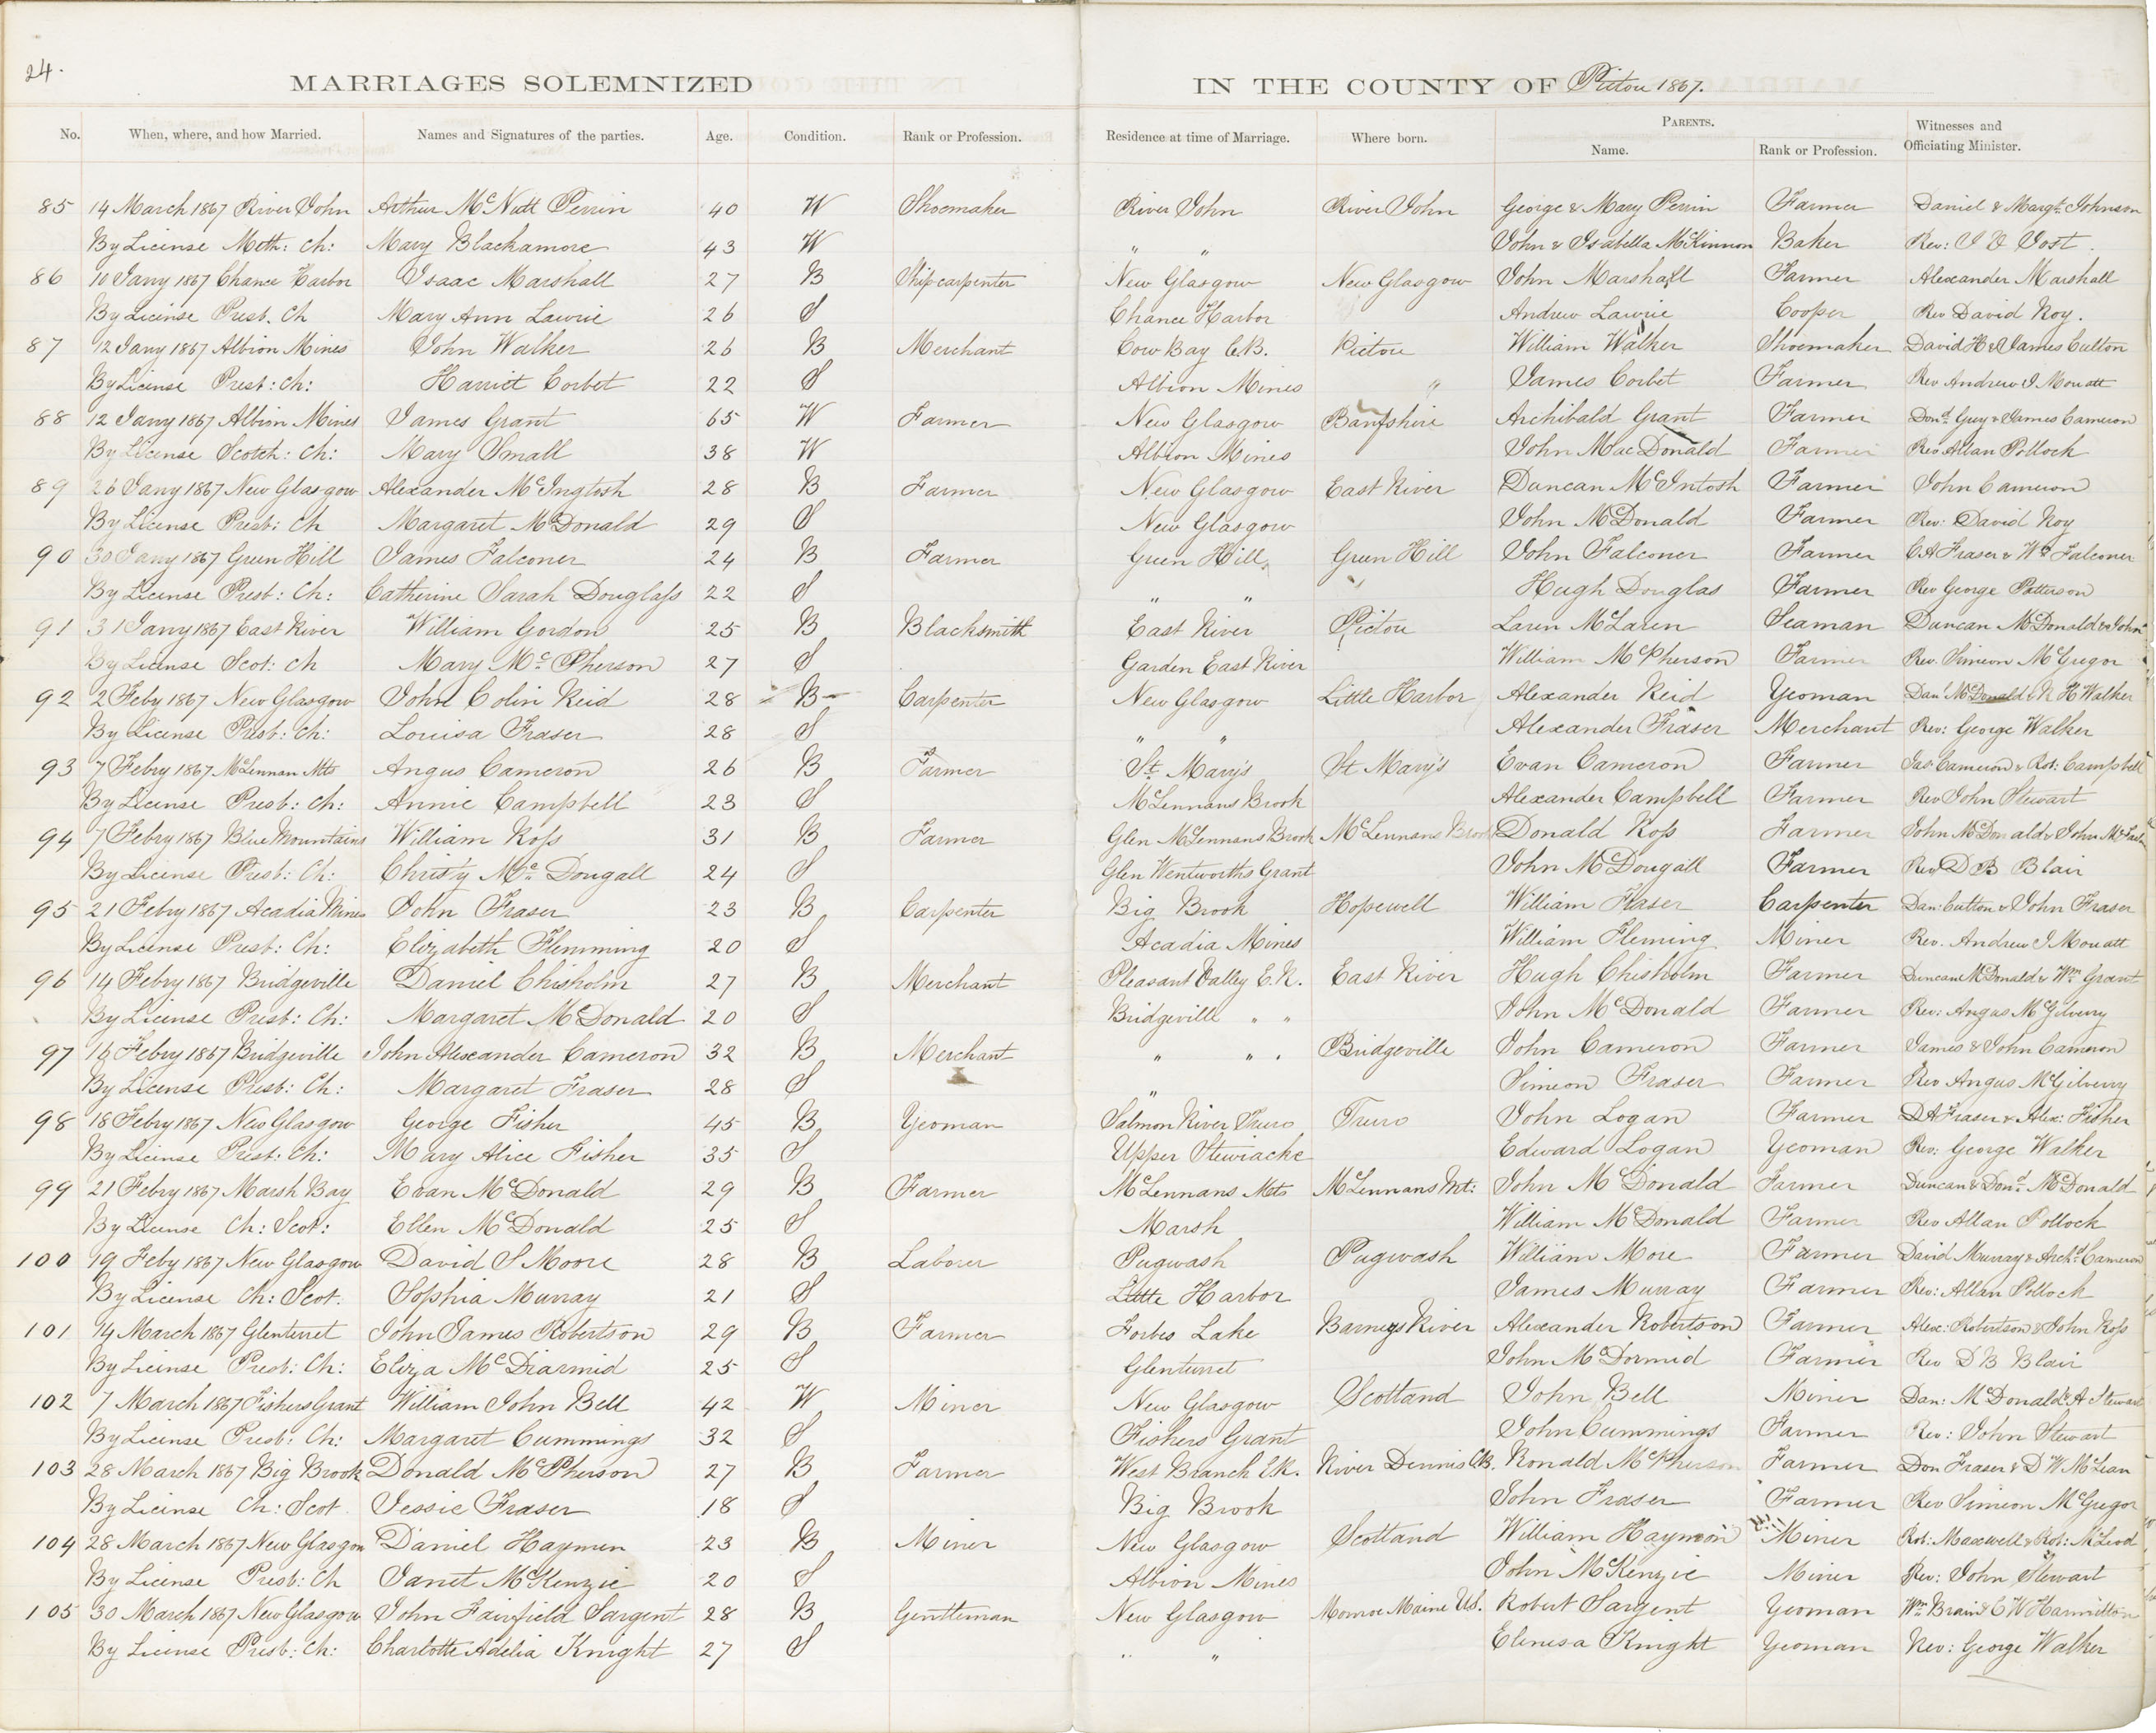 24.
MARRIAGES SOLEMNIZED IN THE COUNTY OF Pictou 1867.
No. When, where, and how Married. Names and Signatures of the parties. Age. Condition. Rank or Profession. Residence at time of Marriage. Where born. PARENTS. Name. Rank or Profession. Witnesses and Officiating Minister.
85 14 March 1867 River John Arthur McNutt Perrin 40 W Shoemaker River John River John George & Mary Perrin Farmer Daniel & Margt Johnson
By License Meth: Ch: Mary Blackamore 43 W " " John & Isabella McKinnon Baker Rev: Jost
86 10 Jany 1867 Chance Harbor Isaac Marshall 27 B Ship carpenter New Glasgow New Glasgow John Marshall Farmer Alexander Marshall
By License Presb. Ch Mary Ann Lawrie 26 S Chance Harbor Andrew Lawrie Cooper Rev David Roy.
87 12 Jany 1867 Albion Mines John Walker 26 B Merchant Cow Bay C.B. Pictou William Walker Shoemaker David H & James Cutton
By License Presb: Ch: Harriet Corbet 22 S Albion Mines " James Corbet Farmer Rev Andrew J Mouatt
88 12 Jany 1867 Albion Mines James Grant 65 W Farmer New Glasgow Banfshire Archibald Grant Farmer Dond Gray & James Cameron
By License Scotch: Ch: Mary Small 38 W Albion Mines John MacDonald Farmer Rev Allan Pollock
89 26 Jany 1867 New Glasgow Alexander McIngtosh 28 B Farmer New Glasgow East River Duncan McIntosh Farmer John Cameron
By License Presb: Ch Margaret McDonald 29 S New Glasgow John McDonald Farmer Rev: David Roy
90 30 Jany 1867 Green Hill James Falconer 24 B Farmer Green Hill Green Hill John Falconer Farmer C.A Fraser & Wm Falconer
By License Presb: Ch: Catherine Sarah Douglass 22 S " " Hugh Douglas Farmer Rev George Patterson
91 31 Jany 1867 East River William Gordon 25 B Blacksmith East River Pictou Laren McLaren Seaman Duncan McDonald & John
By License Scot: Ch Mary McPherson 27 S Garden East River William McPherson Farmer Rev. Simeon McGregor
92 2 Feby 1867 New Glasgow John Colin Reid 28 B Carpenter New Glasgow Little Harbor Alexander Reid Yeoman Danl McDonald & R H Walker
By License Presb: Ch: Louisa Fraser 28 S " " Alexander Fraser Merchant Rev: George Walker
93 7 Febry 1867 McLennan Mts Angus Cameron 26 B Farmer St Mary's St Mary's Evan Cameron Farmer Jas Cameron & Rob: Campbell
By License Presb: Ch: Annie Campbell 23 S McLennans Brook Alexander Campbell Farmer Rev John Stewart
94 7 Febry 1867 Blue Mountains William Ross 31 B Farmer Glen McLennans Brook McLennans Brook Donald Ross Farmer John McDonald & John
By License Presb: Ch: Christy McDougall 24 S Glen Wentworths Grant John McDougall Farmer Rev D B Blair
95 21 Febry 1867 Acadia Mines John Fraser 23 B Carpenter Big Brook Hopewell William Fraser Carpenter Dan: Cutton & John Fraser
By License Presb: Ch: Elizabeth Flemming 20 S Acadia Mines William Fleming Miner Rev. Andrew J Mouatt
96 14 Febry 1867 Bridgeville Daniel Chisholm 27 B Merchant Pleasant Valley E.R. East River Hugh Chisholm Farmer Duncan McDonald & Wm Grant
By License Presb: Ch: Margaret McDonald 20 S Bridgeville " " John McDonald Farmer Rev: Angus McGilvery
97 14 Febry 1867 Bridgeville John Alexander Cameron 32 B Merchant " " " Bridgeville John Cameron Farmer James & John Cameron
By License Presb: Ch: Margaret Fraser 28 S " Simeon Fraser Farmer Rev Angus McGilvery
98 18 Febry 1867 New Glasgow George Fisher 45 B Yeoman Salmon River Truro Truro John Logan Farmer D A Fraser & Alex: Fisher
By License Presb: Ch: Mary Alice Fisher 35 S Upper Stewiacke Edward Logan Yeoman Rev: George Walker
99 21 Febry 1867 Marsh Bay Evan McDonald 29 B Farmer McLennans Mts McLennans Mt: John McDonald Farmer Duncan & Dond McDonald
By License Ch: Scot: Ellen McDonald 25 S Marsh William McDonald Farmer Rev Allan Pollock
100 19 Feby 1867 New Glasgow David S Moore 28 B Laborer Pugwash Pugwash William More Farmer David Murray & Archd Cameron
By License Ch: Scot. Sophia Murray 21 S Little Harbor James Murray Farmer Rev: Allan Pollock
101 14 March 1867 Glenturret John James Robertson 29 B Farmer Forbes Lake Barneys River Alexander Robertson Farmer Alex: Robertson & John Ross
By License Presb: Ch: Eliza McDiarmid 25 S Glenturret John McDormid Farmer Rev D B Blair
102 7 March 1867 Fishers Grant William John Bell 42 W Miner New Glasgow Scotland John Bell Miner Dan: McDonald & A Stewart
By License Presb: Ch: Margaret Cummings 32 S Fishers Grant John Cummings Farmer Rev: John Stewart
103 28 March 1867 Big Brook Donald McPherson 27 B Farmer West Branch E.R. River Dennis C.B. Ronald McPherson Farmer Don Fraser & D W McLean
By License Ch: Scot Jessie Fraser 18 S Big Brook John Fraser Farmer Rev Simeon McGregor
104 28 March 1867 New Glasgow Daniel Haymen 23 B Miner New Glasgow Scotland William Haymon Miner Rob: Maxwell & Rob: McLeod
By License Presb: Ch Janet McKenzie 20 S Albion Mines John McKenzie Miner Rev: John Stewart
105 30 March 1867 New Glasgow John Fairfield Sargent 28 B Gentleman New Glasgow Monroe Maine U.S. Robert Sargent Yeoman Wm Brain & C W Hammilton
By License Presb: Ch: Charlotte Adelia Knight 27 S " " Elenesa Knight Yeoman Rev: George Walker